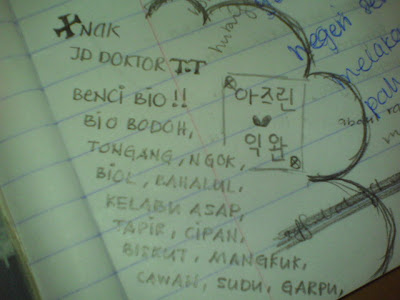 Xnak
JD DOKTOR T.T
BENCI BIO!!
BIO BODOH,
TONGANG, NGOK,
BIOL, BAHALUL,
KELABU ASAP,
TAPIR, CIPAN,
BISKUT, MANGKUK,
CAWAN, SUDU, GARPU,
아즈린
♥
익완
negeri se
melaka
pah